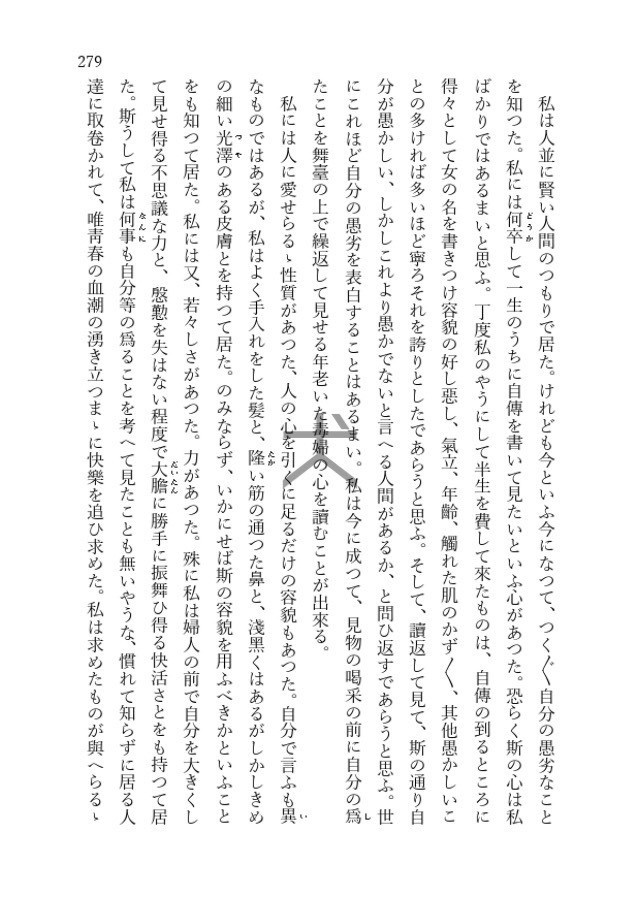 279
私は人並に賢い人間のつもりで居た。けれども今といふ今になつて、つく〴〵自分の愚劣なこと
を知つた。私には何卒して一生のうちに自傳を書いて見たいといふ心があつた。恐らく斯の心は私
どうか
ばかりではあるまいと思ふ。丁度私のやうにして半生を費して來たものは、自傳の到るところに
得々として女の名を書きつけ容貌の好し惡し、氣立、年齡、觸れた肌のかず〳〵、其他愚かしいこ
との多ければ多いほど寧ろそれを誇りとしたであらうと思ふ。そして、讀返して見て、斯の通り自
分が愚かしい、しかしこれより愚かでないと言へる人間があるか、と問ひ返すであらうと思ふ。世
にこれほど自分の愚劣を表白することはあるまい。私は今に成つて、見物の喝采の前に自分の爲
し
たことを舞臺の上で繰返して見せる年老いた毒婦の心を讀むことが出來る。
私には人に愛せらるゝ性質があつた、人の心を引くに足るだけの容貌もあつた。自分で言ふも異
い
なものではあるが、私はよく手入れをした髪と、隆い筋の通つた鼻と、淺黑くはあるがしかしきめ
たか
の細い光澤のある皮膚とを持つて居た。のみならず、いかにせば斯の容貌を用ふべきかといふこと
つや
をも知つて居た。私には又、若々しさがあつた。力があつた。殊に私は婦人の前で自分を大きくし
て見せ得る不思議な力と、慇懃を失はない程度で大膽に勝手に振舞ひ得る快活さとをも持つて居
だいたん
た。斯うして私は何事も自分等の爲ることを考へて見たことも無いやうな、慣れて知らずに居る人
なんに
達に取卷かれて、唯靑春の血潮の湧き立つまゝに快樂を追ひ求めた。私は求めたものが與へらるゝ